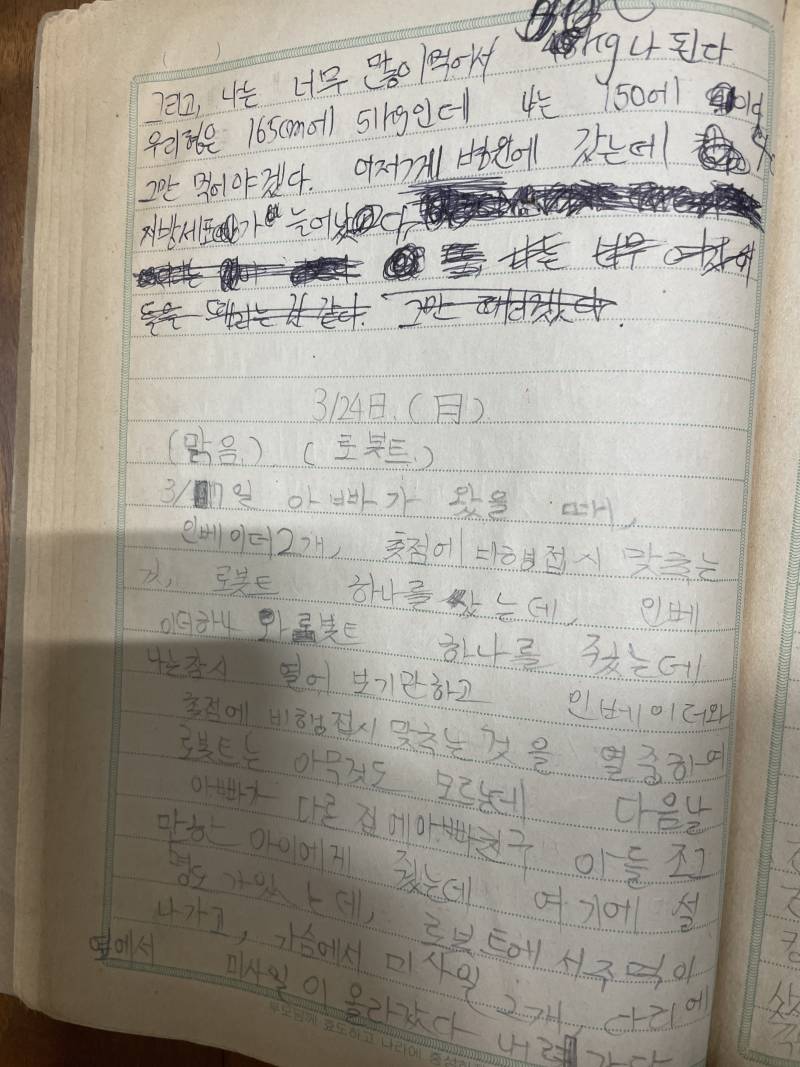 그리고, 나는 너무 많이 먹어서 48kg나 된다
우리형은 165cm에 51kg인데 나는 150에
그만 먹어야겠다. 어저그게 병원에 갔는데
지방세포가 늘어났다,
나는 너무 여자애
들을 때리는 것 같다. 그만 때려겠다.
3/24日.(日)
(맑음.) (로봇트.)
3/17일 아빠가 왔을 때,
인베이더2개, 촛점에 비행접시 맞추는
것, 로봇트 하나를 샀는데, 인베
이더하나와 로봇트 하나를 줬는데
나는잠시 열어 보기만하고 인베이더와
촛점에 비행접시 맞추는 것을 열중하여
로봇트는 아무것도 모르는데 다음날
아빠가 다른 집에아빠친구 아들 조그
만한 아이에게 줬는데 여기에 설
명도가있는데, 로보트에서 주먹이
나가고, 가슴에서 미사일 2개, 다리에
옆에서 미사일이 올라갔다 내려간다
부모님께 효도하고 나라에 충성